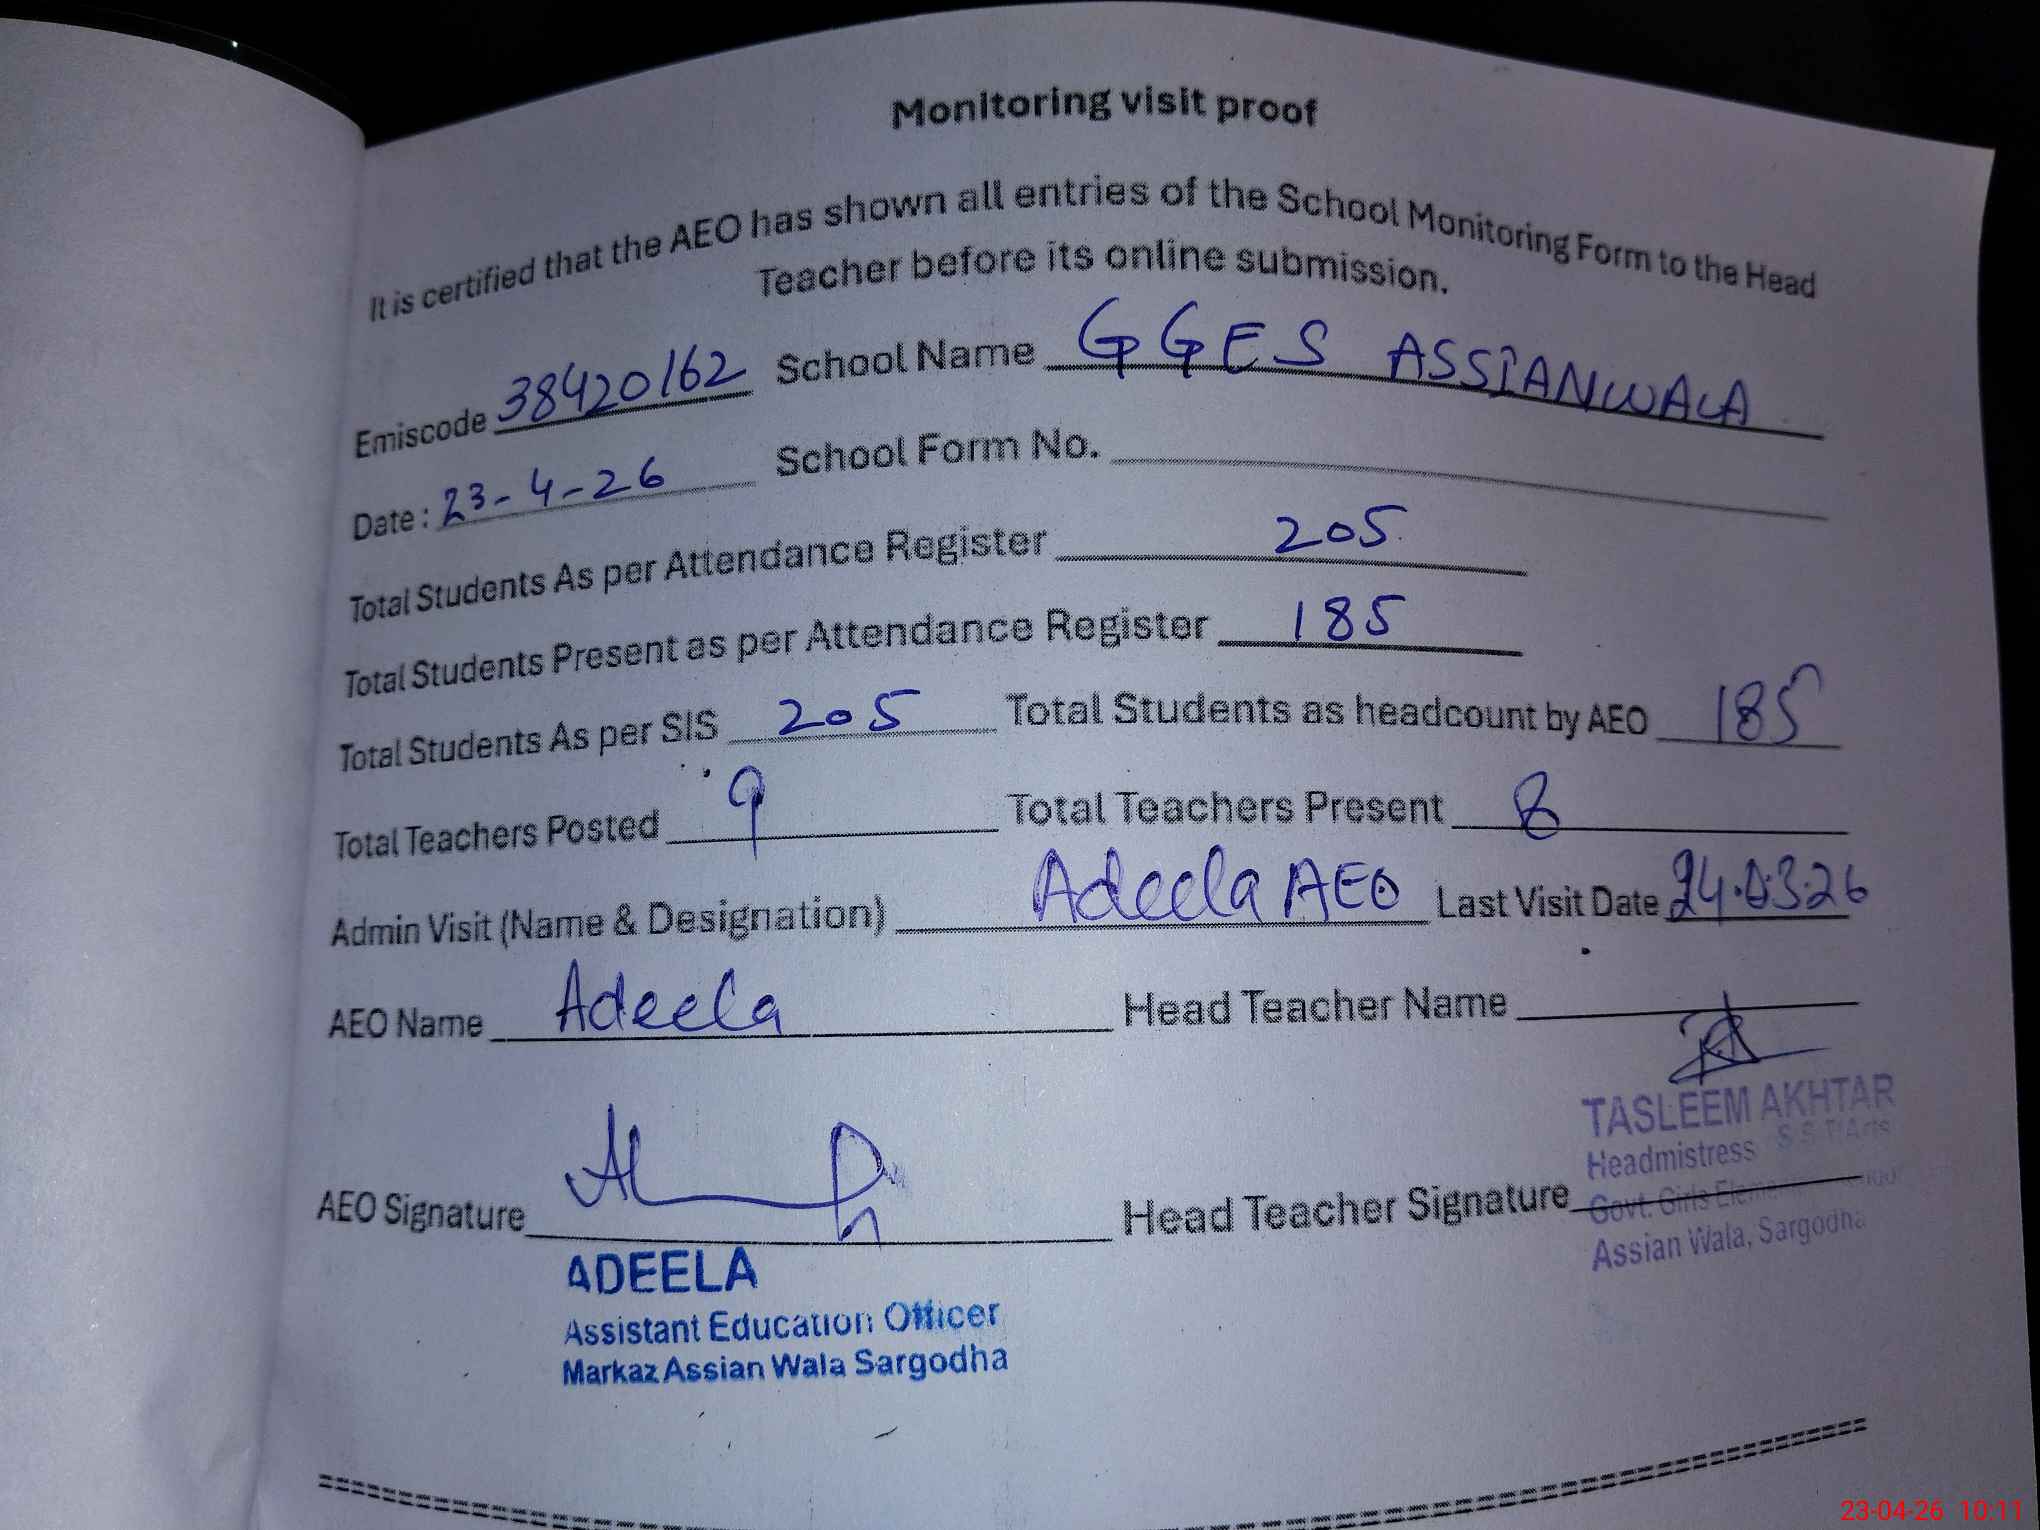 Monitoring visit proof
It is certified that the AEO has shown all entries of the School Monitoring Form to the Head
Teacher before its online submission.
Emiscode 38420162 School Name GGES ASSIANWALA
Date: 23-4-26 School Form No.
Total Students As per Attendance Register 205
Total Students Present as per Attendance Register 185
Total Students As per SIS 205 Total Students as headcount by AEO 185
Total Teachers Posted 9 Total Teachers Present 8
Admin Visit (Name & Designation) Adeela AEO Last Visit Date 24.03.26
AEO Name Adeela Head Teacher Name
TASLEEM AKHTAR
Headmistress S.S.T Arts
AEO Signature Head Teacher Signature
Govt. Girls
Assian Wala, Sargodha
ADEELA
Assistant Education Officer
Markaz Assian Wala Sargodha
23-04-26 10:11